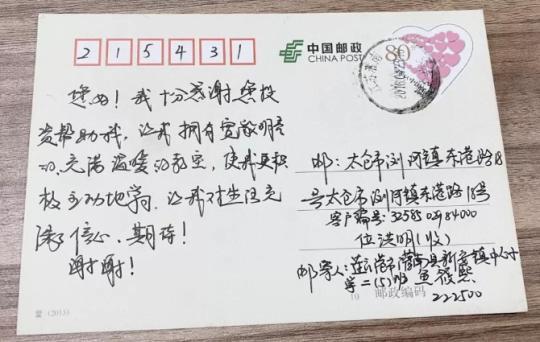 215431
中国邮政
CHINA POST
80
您好！我十分感谢您投
资帮助我，让我拥有宽敞明亮
的、充满温暖的教室，使我更积
极主动地学习。让我对生活充
满信心、期待！
谢谢！
邮：太仓市浏河镇东港路18
号太仓市浏河镇东港路18号
客户编号：
位洪明（收）
邮寄人：连云港市灌南县新安镇中心小
学二（5）班
邮政编码
222500
(2013)